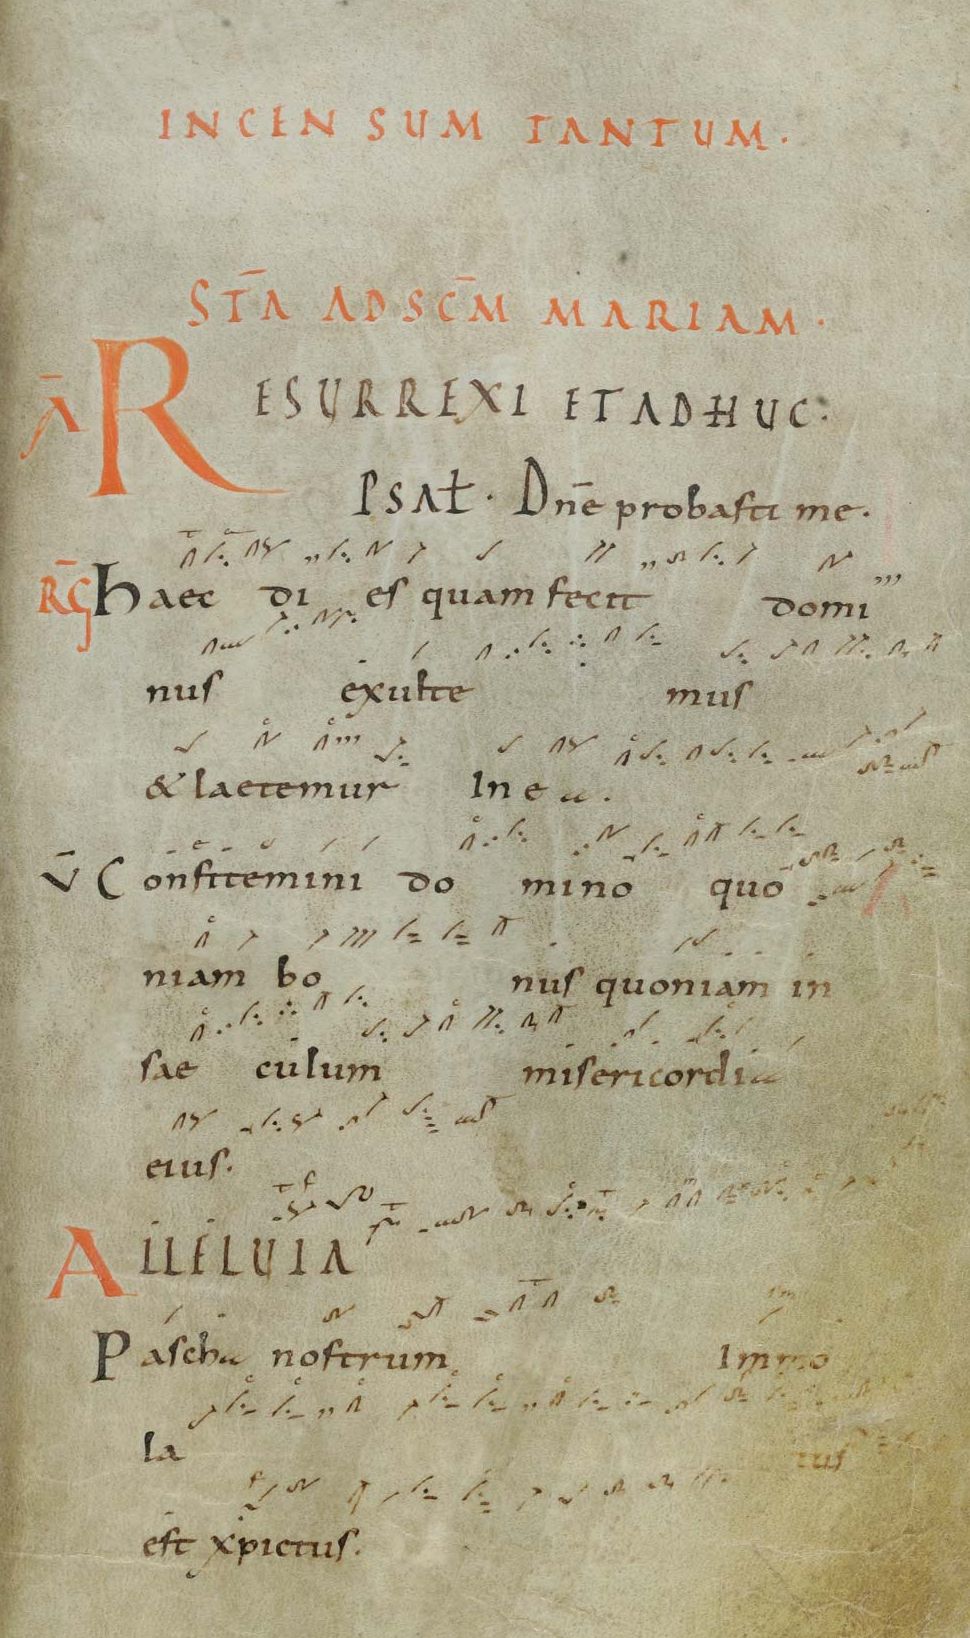 INCENSUM TANTUM.
ST̄A AD SC̄M MARIAM.
Ā RESURREXI ET ADHUC:
PSAŁ. Dn̄e probasti me.
R̄G Haec dies quam fecit domi
nus exulte mus
& laetemur In ea.
V̄ Confitemini do mino quo
niam bo nus quoniam in
sae culum misericordia
eius.
ALLELUIA
Pascha nostrum Immo
la tus
est xp̄ictus.